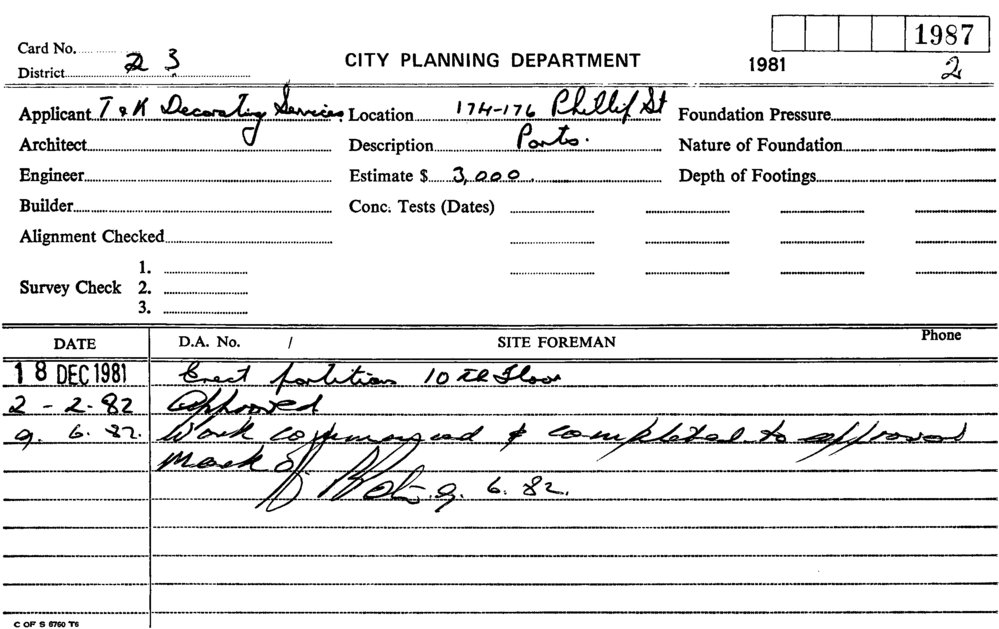 Card No. 1987
District 2 3 CITY PLANNING DEPARTMENT 1981 2
Applicant T & K Decorating Services Location 174-176 Phillip St Foundation Pressure
Architect Description Parts. Nature of Foundation
Engineer Estimate $ 3,000. Depth of Footings
Builder Conc. Tests (Dates)
Alignment Checked
1.
Survey Check 2.
3.
DATE D.A. No. / SITE FOREMAN Phone
18 DEC 1981 Erect partitions 10th Floor
2-2-82 Approved
9.6.82. Work commenced & completed to approved
Mark off 9.6.82.
C OF S 6760 T6